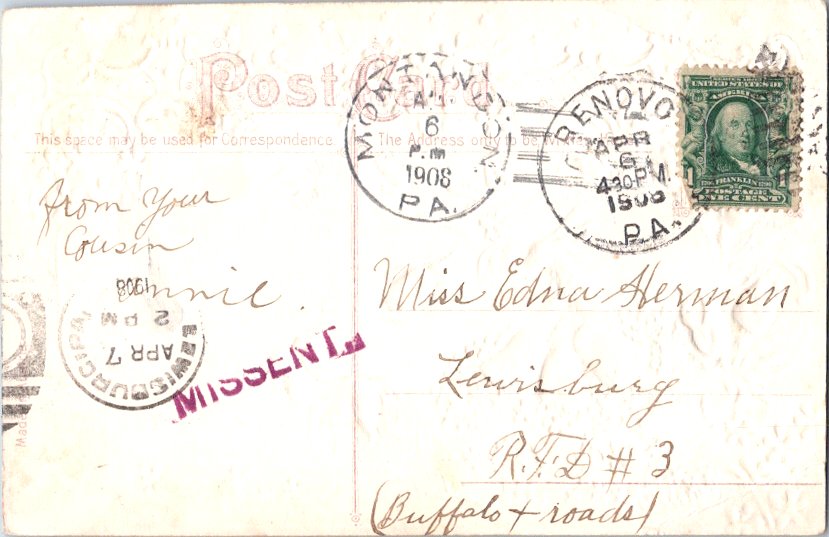 Post Card
This space may be used for Correspondence. The Address only to be
MONTANDON
6
P.M
1908
PA.
RENOVO
APR
6
4-30 P.M.
1908
PA.
UNITED STATES OF
AMERICA
1 FRANKLIN 1
POSTAGE
ONE CENT
from your
Cousin
Miss Edna Herman
Lewisburg
R.F.D # 3
(Buffalo + roads)
LEWISBURG, PA.
APR 7
2 PM
1908
MISSENT